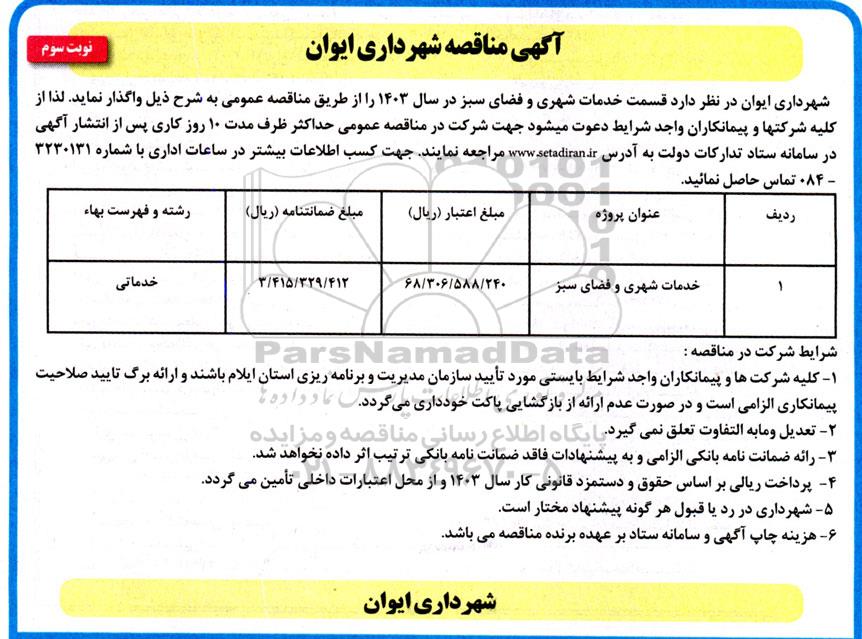 آگهی مناقصه شهرداری ایوان
نوبت سوم
شهرداری ایوان در نظر دارد قسمت خدمات شهری و فضای سبز در سال ۱۴۰۳ را از طریق مناقصه عمومی به شرح ذیل واگذار نماید. لذا از
کلیه شرکتها و پیمانکاران واجد شرایط دعوت میشود جهت شرکت در مناقصه عمومی حداکثر ظرف مدت ۱۰ روز کاری پس از انتشار آگهی
در سامانه ستاد تدارکات دولت به آدرس www.setadiran.ir مراجعه نمایند. جهت کسب اطلاعات بیشتر در ساعات اداری با شماره ۳۲۳۰۱۳۱
- ۰۸۴ تماس حاصل نمائید.
ردیف عنوان پروژه مبلغ اعتبار (ریال) مبلغ ضمانتنامه (ریال) رشته و فهرست بهاء
۱ خدمات شهری و فضای سبز ۶۸/۳۰۶/۵۸۸/۲۴۰ ۳/۴۱۵/۳۲۹/۴۱۲ خدماتی
ParsNamadData
شرایط شرکت در مناقصه :
۱- کلیه شرکت ها و پیمانکاران واجد شرایط بایستی مورد تأیید سازمان مدیریت و برنامه ریزی استان ایلام باشند و ارائه برگ تایید صلاحیت
پیمانکاری الزامی است و در صورت عدم ارائه از بازگشایی پاکت خودداری می‌گردد.
۲- تعدیل ومابه التفاوت تعلق نمی گیرد.
پایگاه اطلاع رسانی مناقصه و مزایده
۳- رائه ضمانت نامه بانکی الزامی و به پیشنهادات فاقد ضمانت نامه بانکی ترتیب اثر داده نخواهد شد.
۰۲۱-۸۸۳۴۹۶۷۰-۵
۴- پرداخت ریالی بر اساس حقوق و دستمزد قانونی کار سال ۱۴۰۳ و از محل اعتبارات داخلی تأمین می گردد.
۵- شهرداری در رد یا قبول هر گونه پیشنهاد مختار است.
۶- هزینه چاپ آگهی و سامانه ستاد بر عهده برنده مناقصه می باشد.
شهرداری ایوان